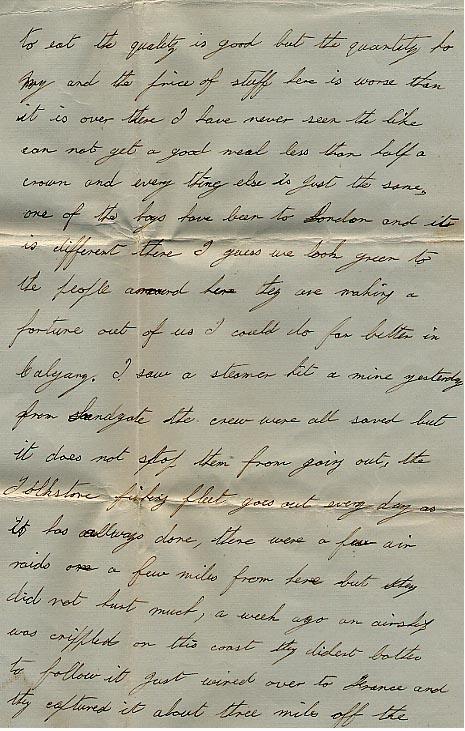 to eat the quality is good but the quantity ho
my and the price of stuff here is worse than
it is over there I have never seen the like
can not get a good meal less than half a
crown and every thing else is just the same,
one of the boys have been to London and its
is different there I guess we look green to
the people around here they are making a
fortune out of us I could do far better in
Calgary. I saw a steamer hit a mine yesterday
from Sandgate the crew were all saved but
it does not stop them from going out, the
Folkstone fishing fleet goes out every day as
it has allways done, there were a few air
raids a few miles from here but they
did not hurt much, a week ago an airship
was crippled on this coast they didest bother
to follow it just wired over to France and
they captured it about three miles off the